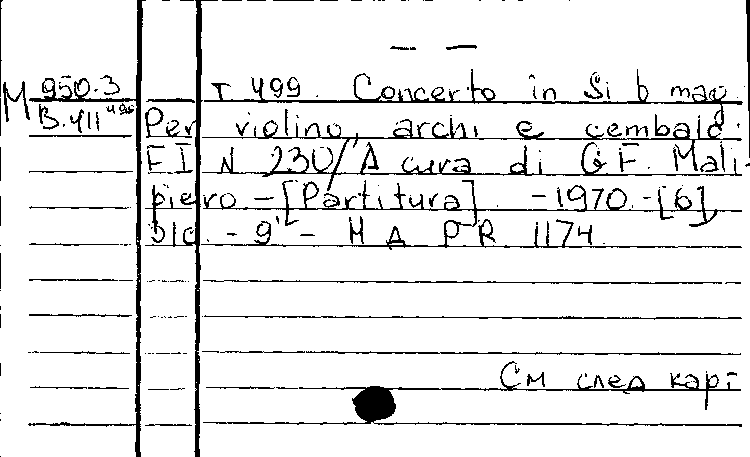 — —
М 950.3
В.411⁴⁹⁹
Т 499. Concerto in Si b mag.
Per violino, archi e cembalo.
F I N 230/A cura di G F. Mali-
piero – [Partitura]. – 1970. – [6],
51c. – 9' – M A P R. 1174.
См след карт